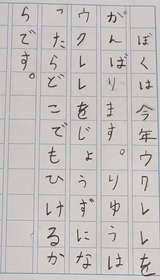 ぼくは今年ウクレレを
がんばります。りゆうは
ウクレレをじょうずにな
ったらどこでもひけるか
らです。